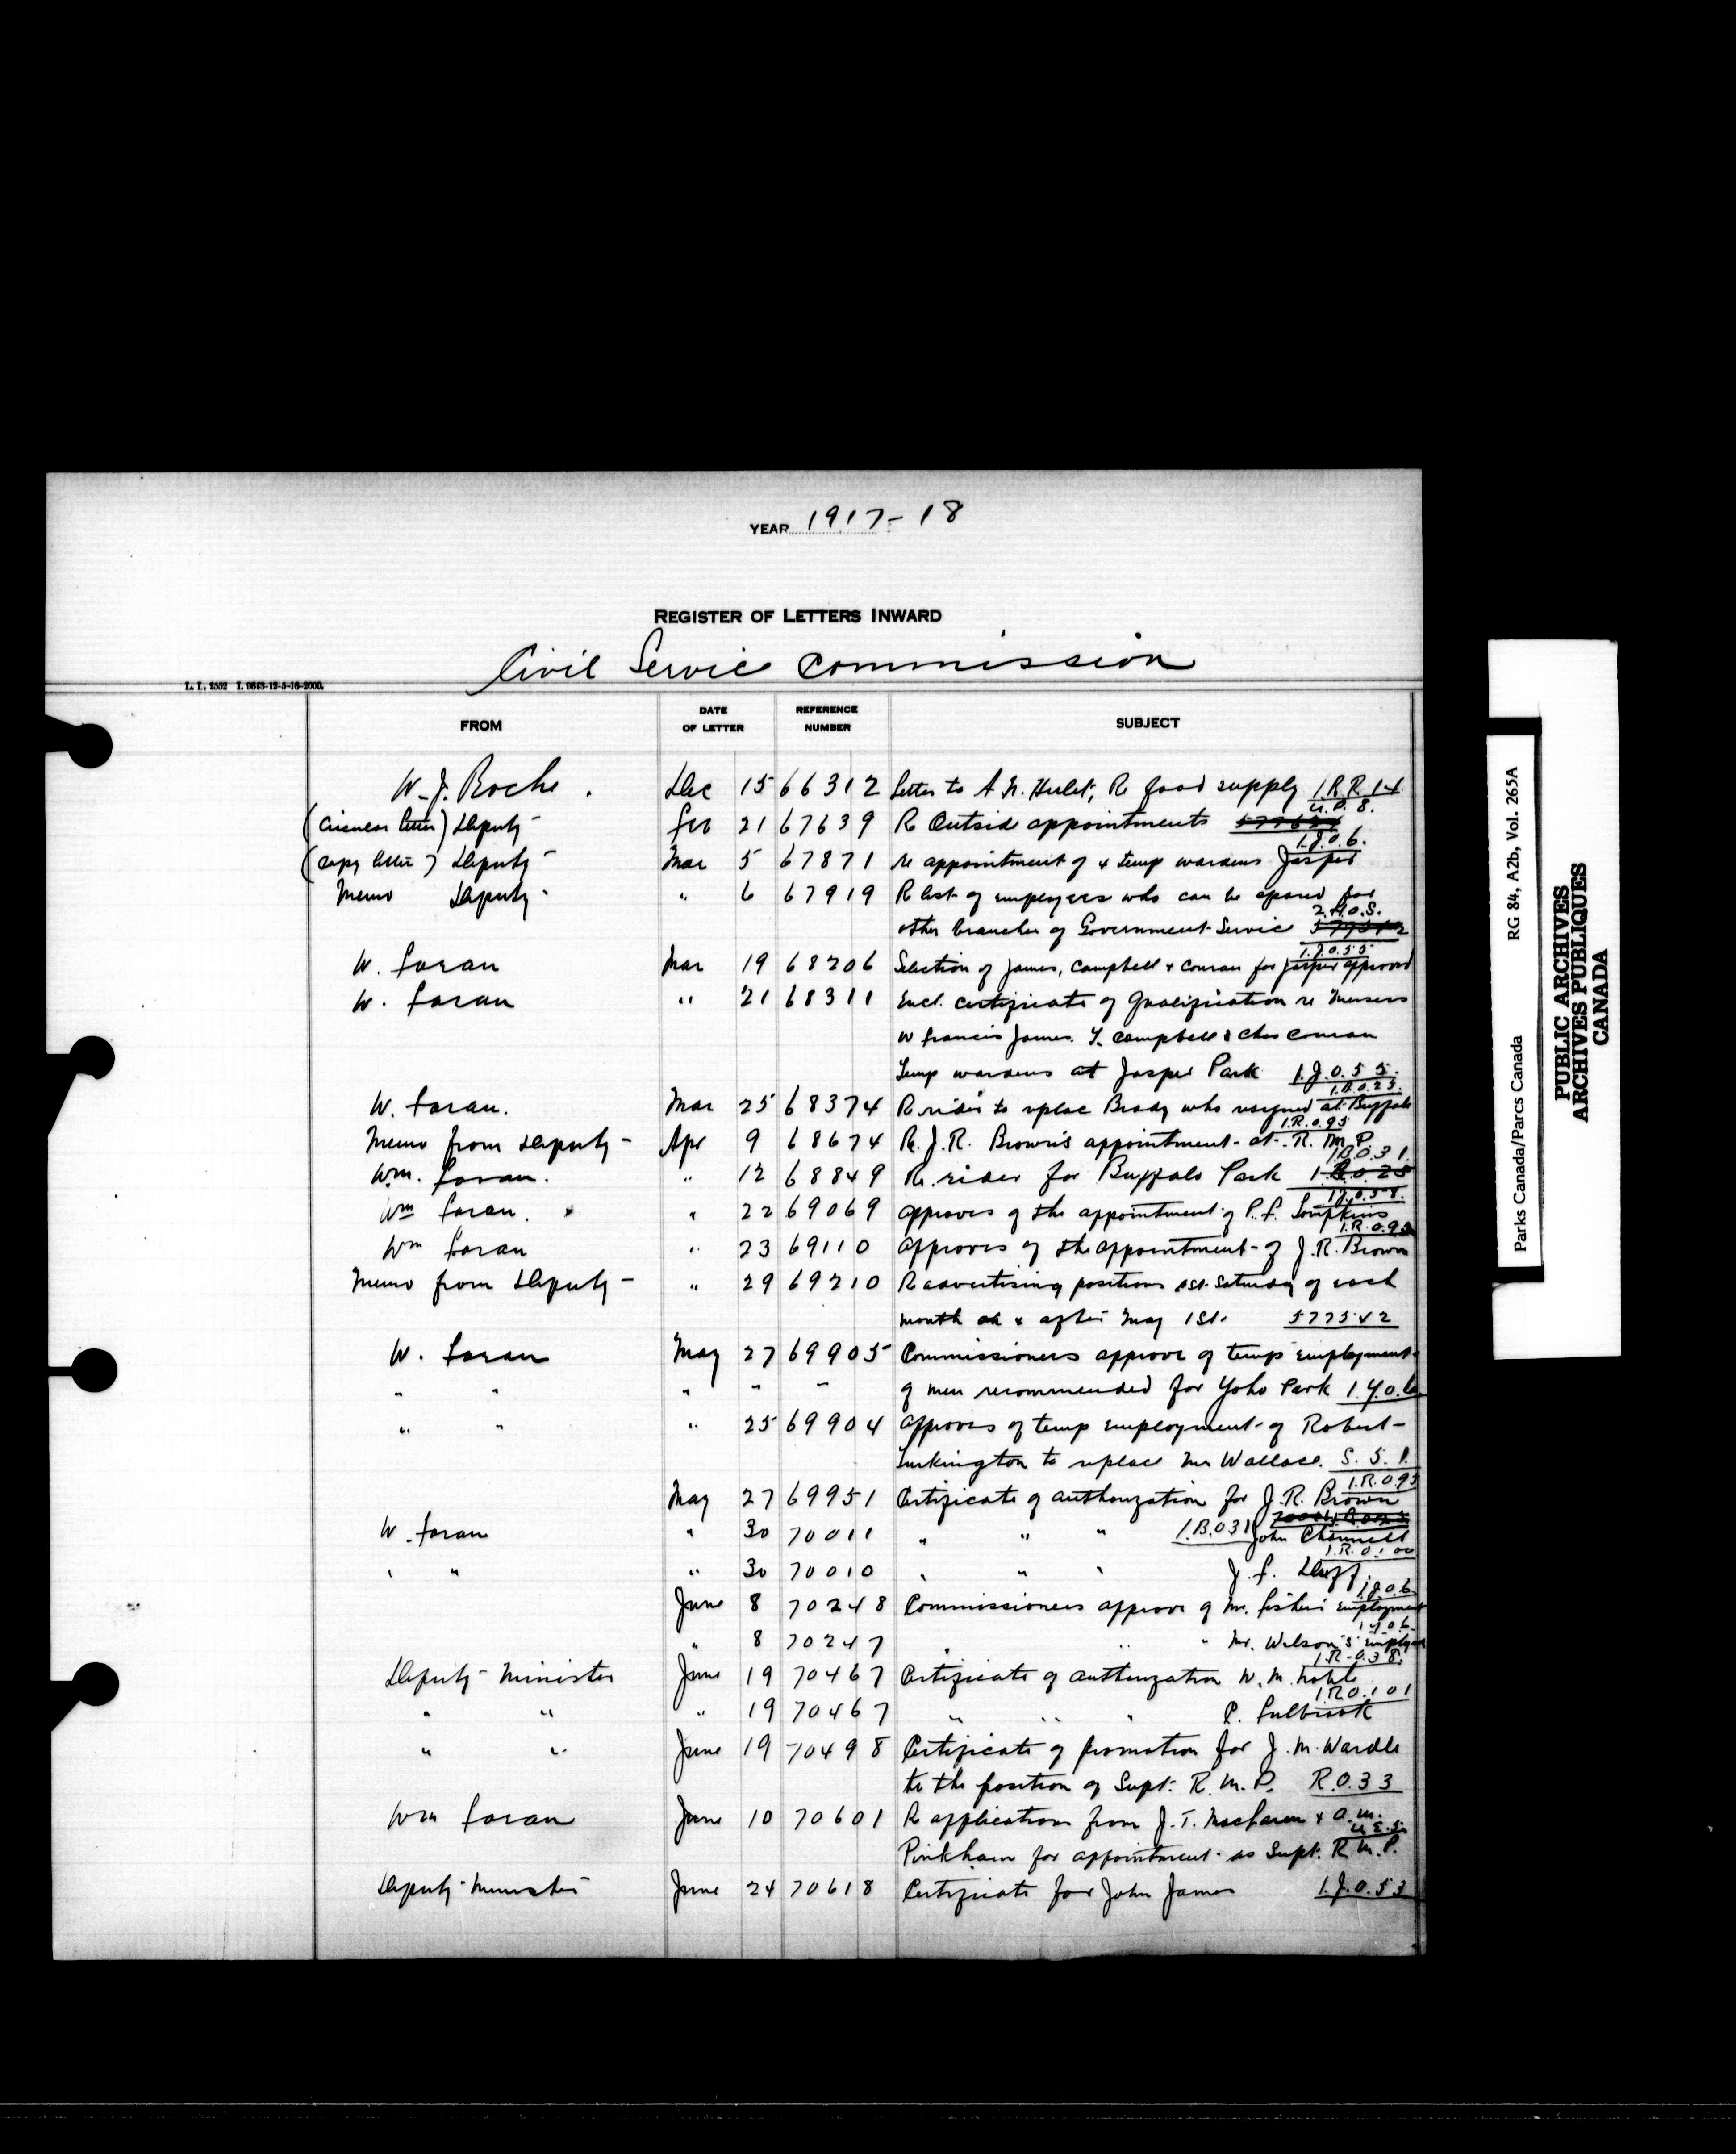 YEAR 1917-18
REGISTER OF LETTERS INWARD
Civil Service Commission
L. I. 2552 I. 9643-12-5-16-2000.
FROM DATE OF LETTER REFERENCE NUMBER SUBJECT
W. J. Roche. Dec 15 66312 Letter to A. N. Hulet, Re food supply 1.R.R.14
(Circular letter) Deputy- Feb 21 67639 Re Outside appointments U.O.8.
(Copy letter) Deputy- Mar 5 67871 re appointment of 4 temp wardens Jasper 1.J.06.
Memo Deputy- " 6 67919 Re list of employees who can be spared for
other branches of Government Service 2.H.O.S.
W. Foran Mar 19 68206 Selection of James, Campbell & Conran for Jasper approved 1.J.0.55
W. Foran " 21 68311 Encl. certificate of Qualification re Messers
W Francis James. Y. Campbell & Chas Conran
Temp wardens at Jasper Park 1.J.0.55.
W. Foran. Mar 25 68374 Re rider to replace Brady who resigned at Buffalo 1.B.0.25.
Memo from Deputy- Apr 9 68674 Re. J.R. Brown's appointment- at-. R. M. P. 1.R.0.95
Wm. Foran. " 12 68849 Re. rider for Buffalo Park 1.B.0.31. 1.B.0.25
Wm Foran. " 22 69069 approves of the appointment of P. F. Tompkins 1.J.0.58.
Wm Foran " 23 69110 approves of the appointment- of J.R. Brown 1.R.0.95
Memo from Deputy- " 29 69210 Re advertising positions 1st. Saturday of each
month on & after May 1st. 577542
W. Foran May 27 69905 Commissioners approve of temps employment-
" " " " - of men recommended for Yoho Park 1.Y.0.6.
" " " 25 69904 approves of temp employment- of Robert-
Turkington to replace Mr Wallace. S. 5. 1.
May 27 69951 Certificate of authorization for J.R. Brown 1.R.095
W. Foran " 30 70011 " " " 1.B.031 John Channell
" " " 30 70010 " " " J. F. Duff. 1.R.0.100
June 8 70248 Commissioners approve of Mr. Fisher's employment 1.J.0.6
" 8 70247 " " " Mr. Wilson's employ 1.Y.0.6.
Deputy- Minister June 19 70467 Certificate of authorization W. M. Noble 1.R-0.38.
" " " 19 70467 " " " P. Fulbrook 1.R.0.101
" " June 19 70498 Certificate of promotion for J. M. Wardle
to the position of Supt. R. M. P. R.0.33
Wm Foran June 10 70601 Re applications from J. T. MacLaren & A. M.
Pinkham for appointment- as Supt. R. M. P. U.E.5.
Deputy- Minister June 24 70618 Certificate for John James 1.J.0.53
Parks Canada/Parcs Canada RG 84, A2b, Vol. 265A
PUBLIC ARCHIVES
ARCHIVES PUBLIQUES
CANADA